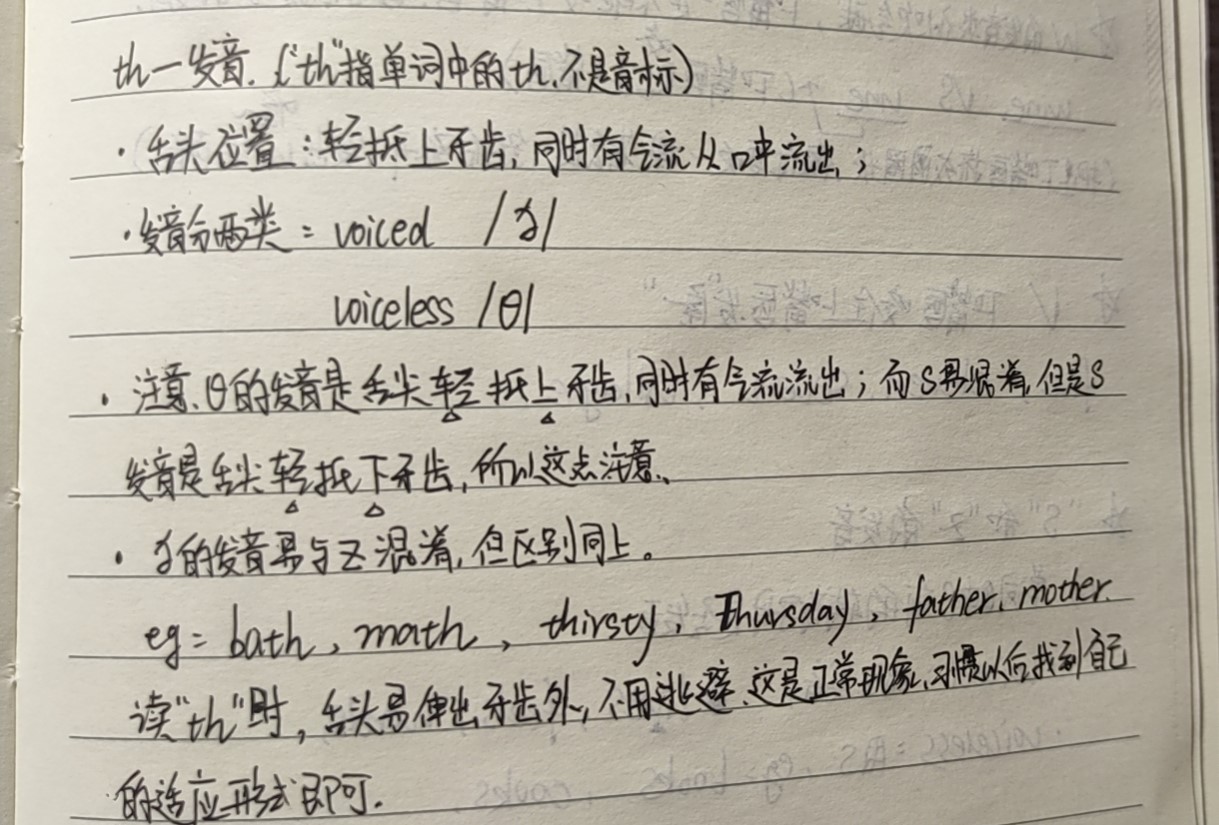 th一发音.("th"指单词中的th,不是音标)
·舌头位置:轻抵上牙齿,同时有气流从口中流出;
·发音分两类: voiced /ð/
voiceless /θ/
·注意、θ的发音是舌尖轻抵上牙齿,同时有气流流出;而S易混淆,但是S
发音是舌尖轻抵下牙齿,所以这点注意、
·ð的发音易与Z混淆,但区别同上。
eg: bath, math, thirsty, Thursday, father, mother.
读"th"时,舌头易伸出牙齿外,不用逃避、这是正常现象,习惯以后找到自己
的适应形式即可.